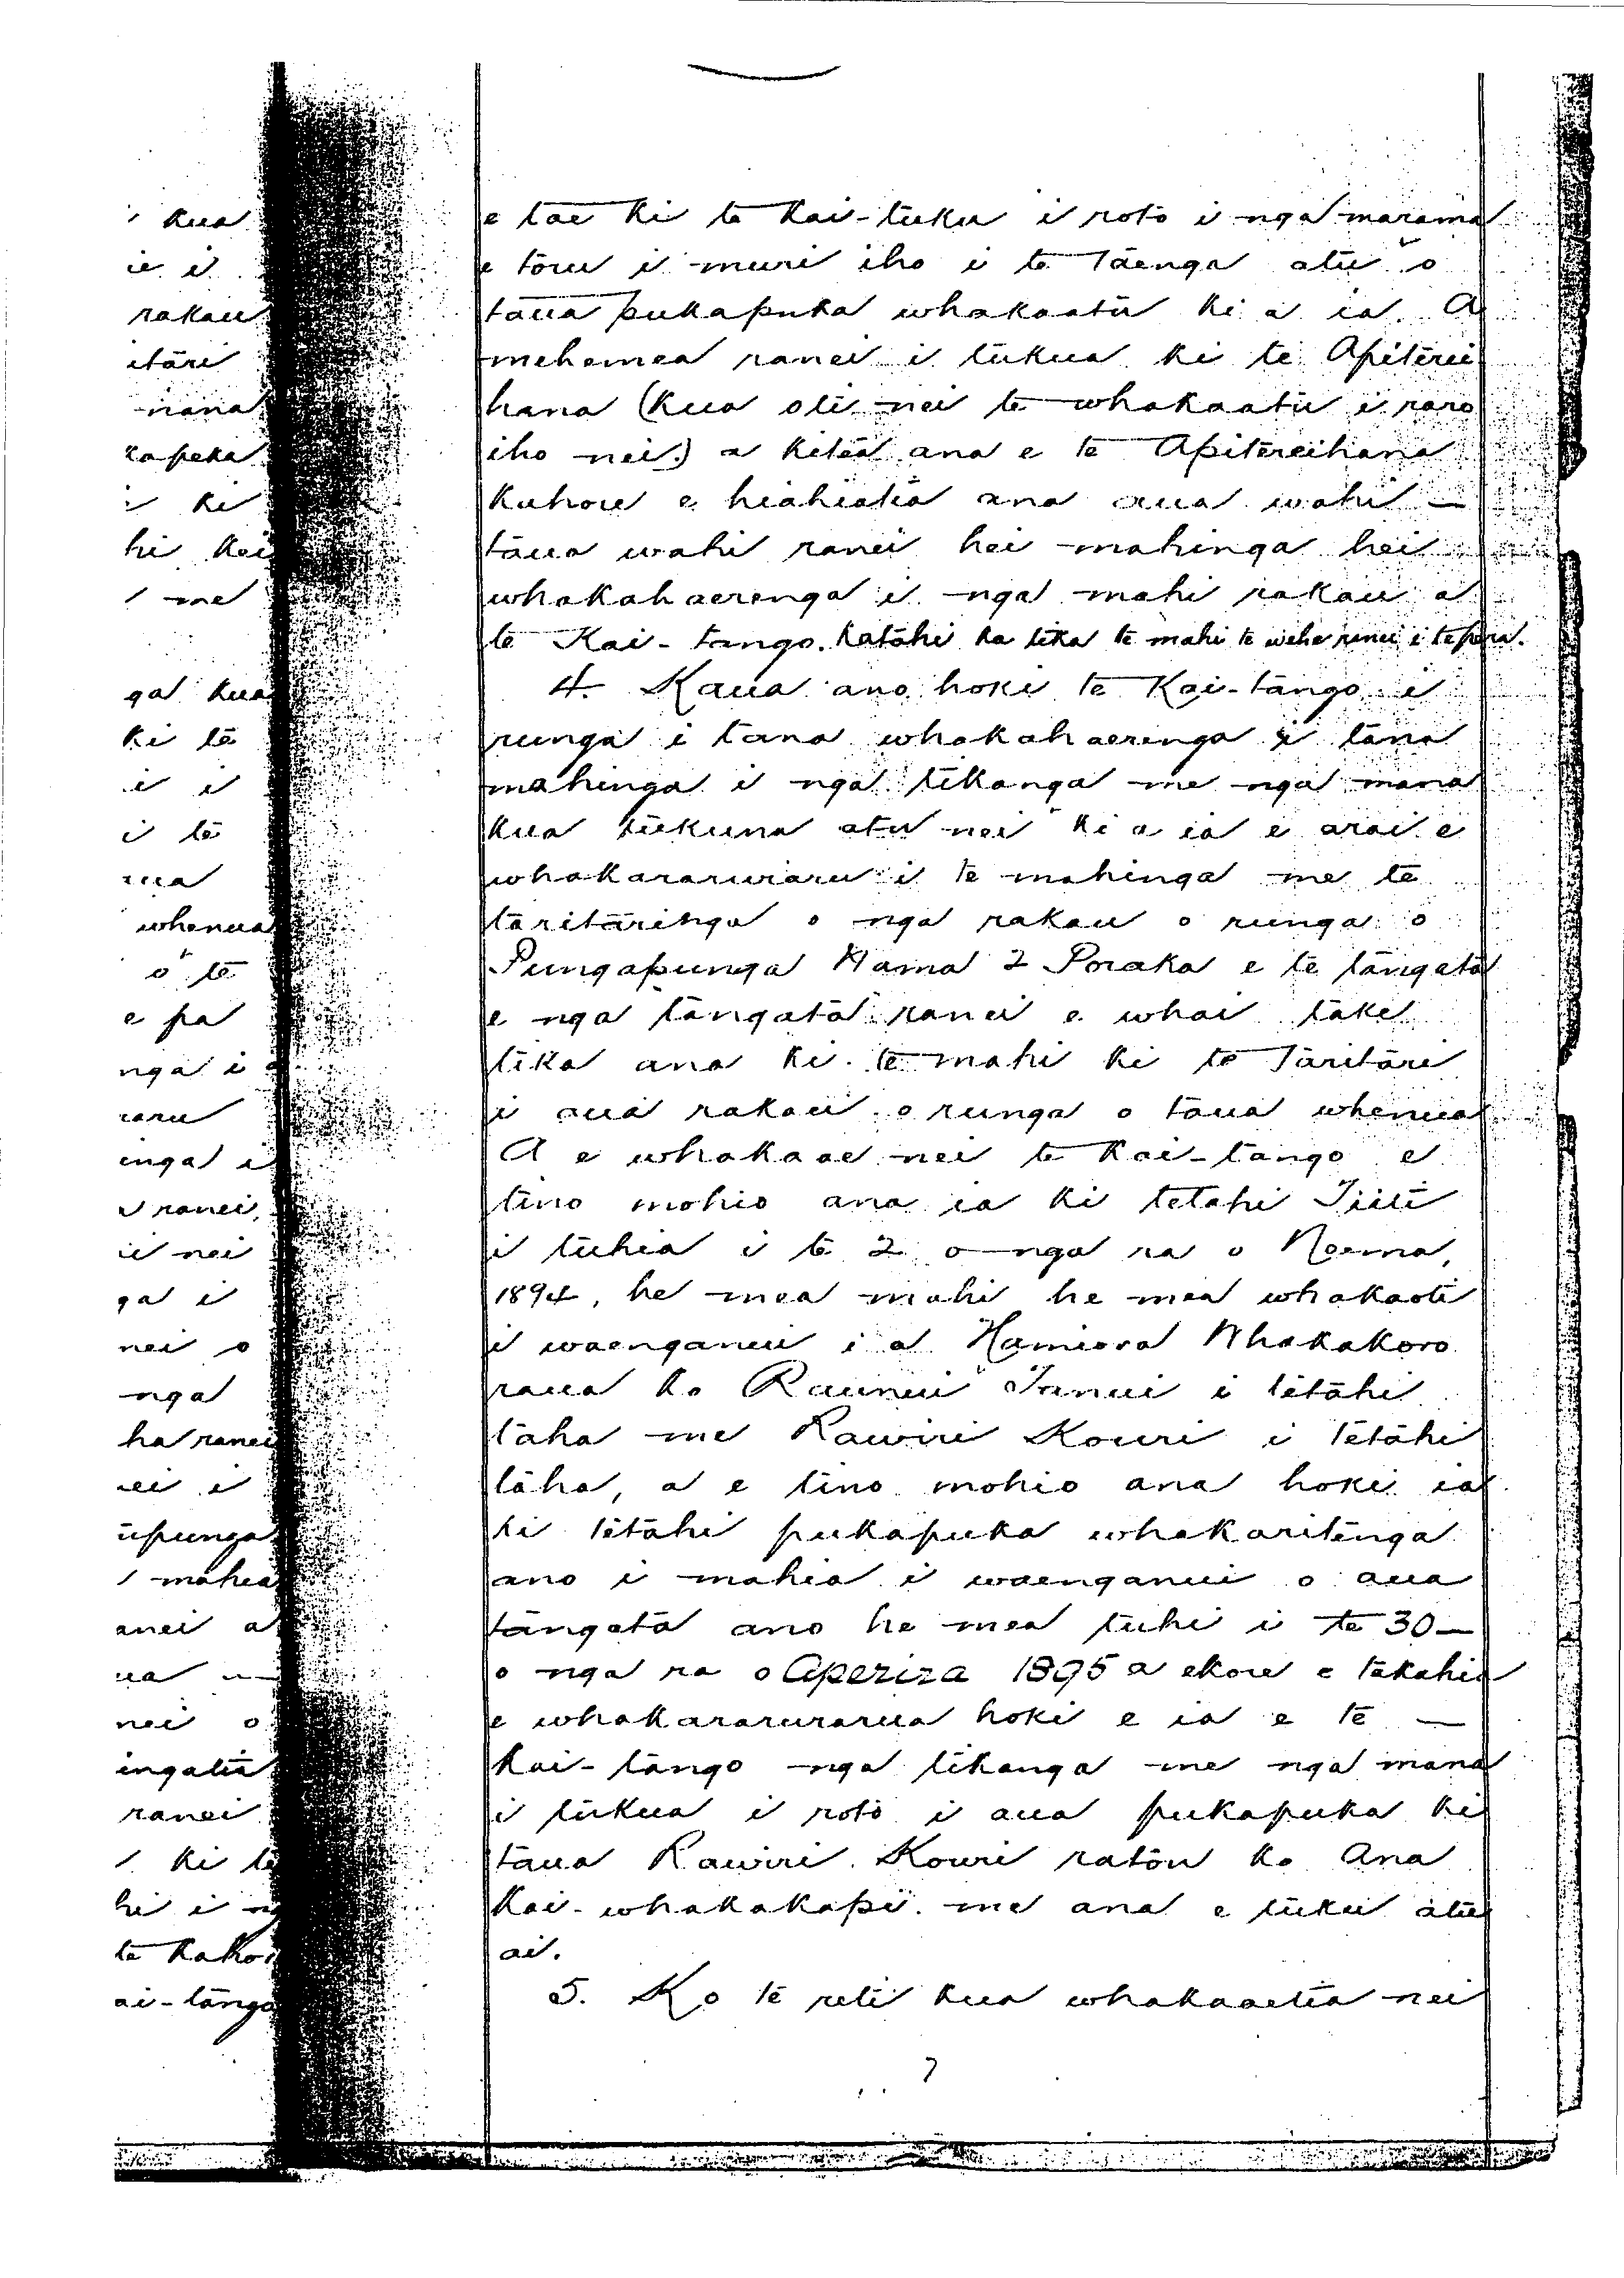 e tae ki te Kai-tuku i roto i nga marama
e toru i muri iho i te Taenga atu o
taua pukapuka whakaatu ki a ia. A
mehemea ranei i tukua ki te Apiterei
hana (kua oti nei te whakaatu i raro
iho nei.) a kitea ana e te Apitereihana
kahore e hiahiatia ana aua wahi —
taua wahi ranei hei mahinga hei
whakahaerenga i nga mahi rakau a
te Kai-tango. Katahi ka tika te mahi te wehe ranei i te pera.
4. Kaua ano hoki te Kai-tango i
runga i tana whakahaerenga i tana
mahinga i nga tikanga me nga mana
kua tukuna atu nei ki a ia e arai e
whakararuraru i te mahinga me te
taritaringa o nga rakau o runga o
Pungapunga Nama 2 Poraka e te tangata
e nga tangata ranei e whai take
tika ana ki te mahi ki te Taritari
i aua rakau o runga o taua whenua
A e whakaae nei te Kai-tango e
tino mohio ana ia ki tetahi Tiiti
i tuhia i te 2 o nga ra o Noema,
1894, he mea mahi he mea whakaoti
i waenganui i a Hamiora Whakakoro
raua ko Raunui Tanui i tetahi
taha me Rawiri Kouri i tetahi
taha, a e tino mohio ana hoki ia
ki tetahi pukapuka whakaritenga
ano i mahia i waenganui o aua
tangata ano he mea tuhi i te 30 —
o nga ra o Aperira 1895 a ekore e takahia
e whakararuraruа hoki e ia e te —
Kai-tango nga tikanga me nga mana
i tukua i roto i aua pukapuka ki
taua Rawiri Kouri ratou ko Ana
Kai-whakakapi me ana e tuku atu
ai.
5. Ko te reti kua whakaaetia nei
7